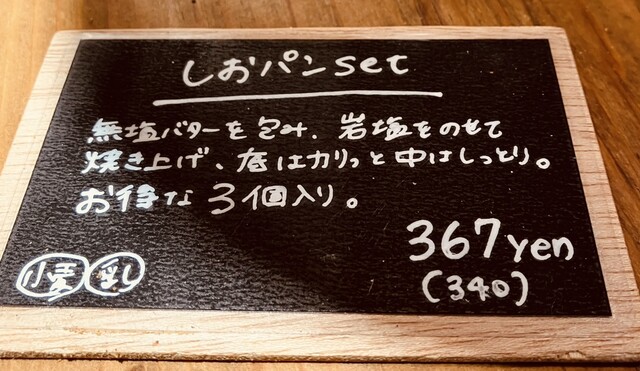 しおパンset
無塩バターを包み、岩塩をのせて
焼き上げ、底はカリっと中はしっとり。
お得な3個入り。
367yen
(340)
小麦 乳